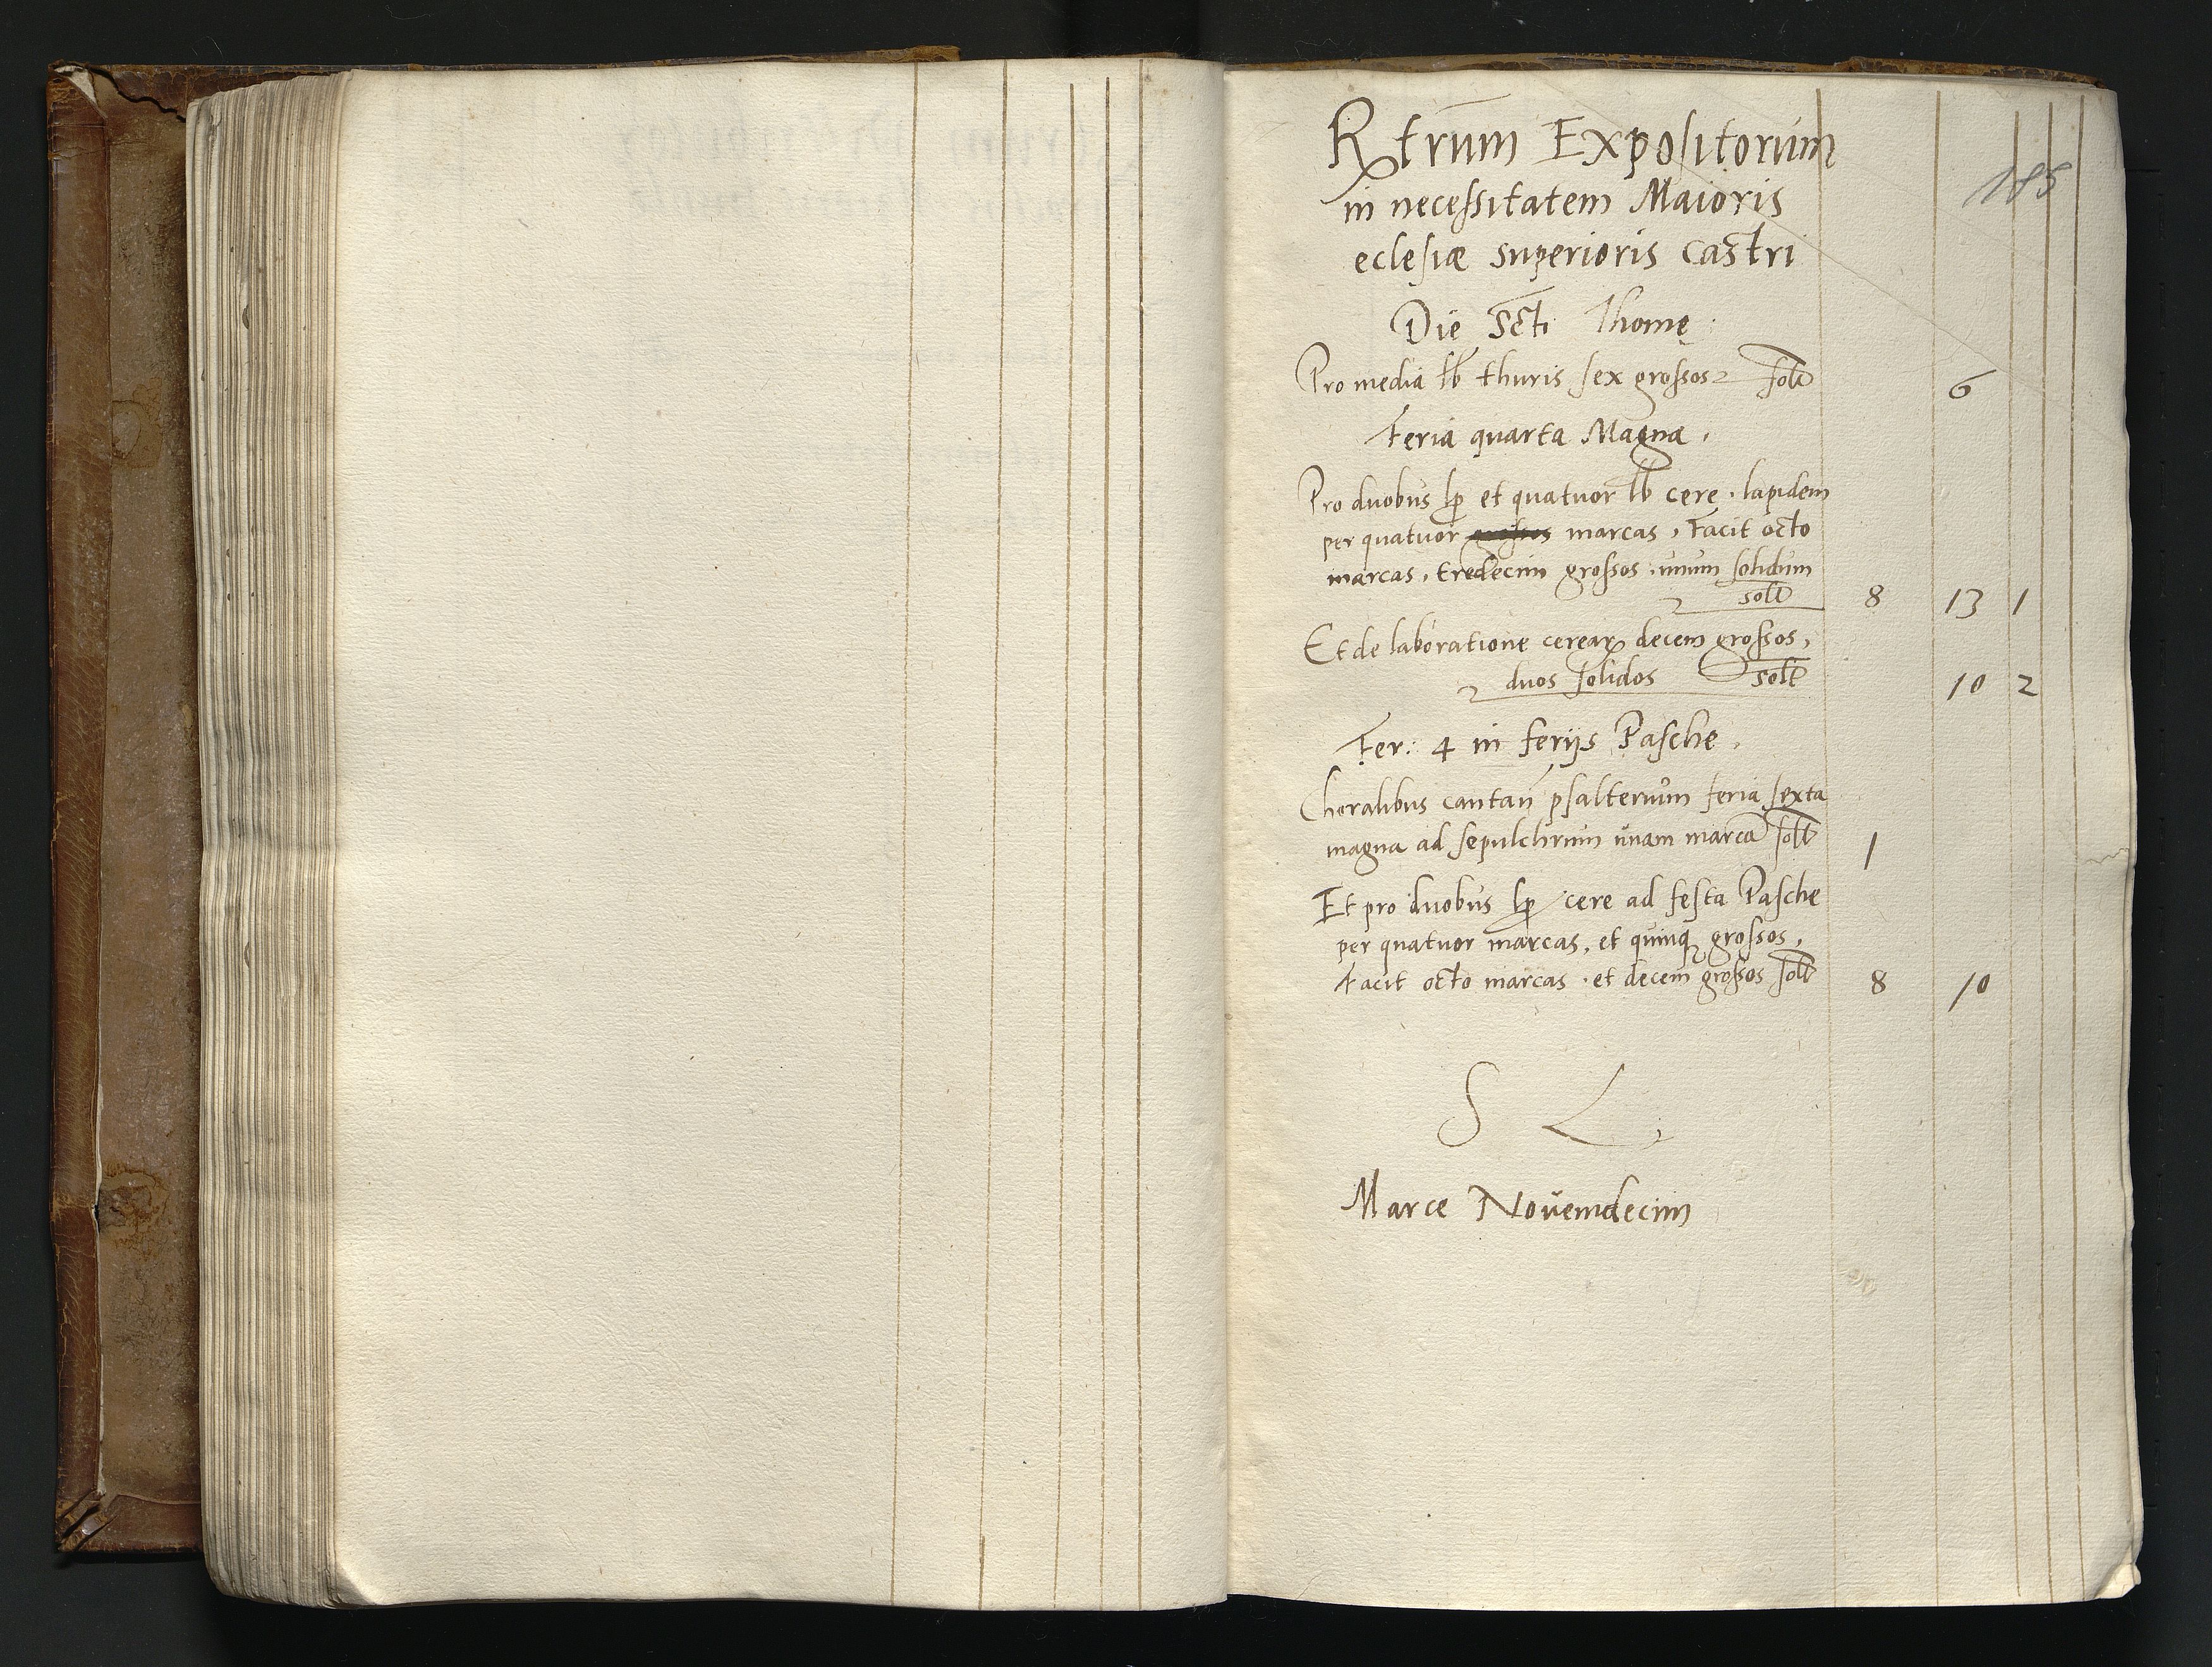 Rtrum Expositorum
185
in necessitatem Maioris
eclesiæ superioris castri
Die Scti Thome
Pro media lb thuris sex grossos solt 6
Feria quarta Magna.
Pro duobus lp et quatuor lb cere. lapidem
per quatuor grossos marcas, Facit octo
marcas, tredecim grossos unum solidum
solt 8 13 1
Et de laboratione cerear decem grossos,
duos solidos solt 10 2
Fer: 4 in ferijs Pasche.
Choralibus cantan psalterium feria sexta
magna ad sepulchrum unam marca solt 1
Et pro duobus lp cere ad festa Pasche
per quatuor marcas, et quinq grossos,
Facit octo marcas. et decem grossos solt 8 10
S L
Marce Novemdecim